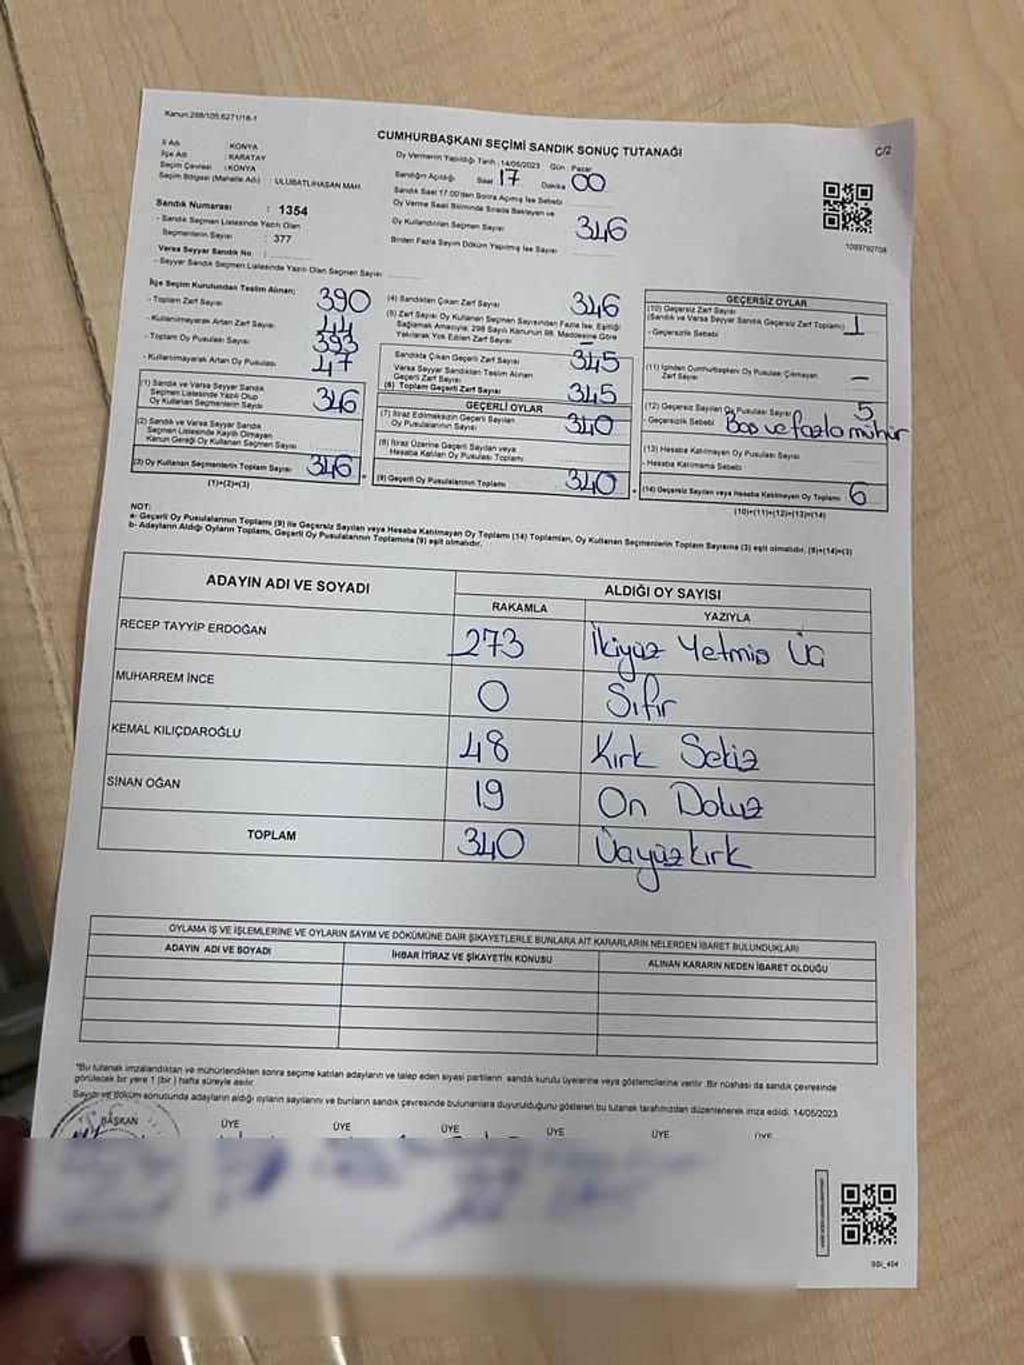 Kanun:298/105.6271/18-1
CUMHURBAŞKANI SEÇİMİ SANDIK SONUÇ TUTANAĞI
C/2
İl Adı : KONYA
İlçe Adı : KARATAY
Seçim Çevresi : KONYA
Seçim Bölgesi (Mahalle Adı) : ULUBATLIHASAN MAH.
Sandık Numarası : 1354
- Sandık Seçmen Listesinde Yazılı Olan
Seçmenlerin Sayısı : 377
Varsa Seyyar Sandık No :
- Seyyar Sandık Seçmen Listesinde Yazılı Olan Seçmen Sayısı
Oy Vermenin Yapıldığı Tarih : 14/05/2023 Gün : Pazar
Sandığın Açıldığı Saat 17 Dakika 00
Sandık Saat 17.00'den Sonra Açılmış İse Sebebi
Oy Verme Saati Bitiminde Sırada Bekleyen ve
Oy Kullandırılan Seçmen Sayısı 346
Birden Fazla Sayım Döküm Yapılmış İse Sayısı
1093792708
İlçe Seçim Kurulundan Teslim Alınan;
- Toplam Zarf Sayısı 390
- Kullanılmayarak Artan Zarf Sayısı 44
- Toplam Oy Pusulası Sayısı 393
- Kullanılmayarak Artan Oy Pusulası 47
(1) Sandık ve Varsa Seyyar Sandık
Seçmen Listesinde Yazılı Olup
Oy Kullanan Seçmenlerin Sayısı 346
(2) Sandık ve Varsa Seyyar Sandık
Seçmen Listesinde Kayıtlı Olmayan
Kanun Gereği Oy Kullanan Seçmen Sayısı
(3) Oy Kullanan Seçmenlerin Toplam Sayısı 346
(1)+(2)=(3)
(4) Sandıktan Çıkan Zarf Sayısı 346
(5) Zarf Sayısı Oy Kullanan Seçmen Sayısından Fazla İse, Eşitliği
Sağlamak Amacıyla, 298 Sayılı Kanunun 98. Maddesine Göre
Yakılarak Yok Edilen Zarf Sayısı –
Sandıkta Çıkan Geçerli Zarf Sayısı 345
Varsa Seyyar Sandıktan Teslim Alınan
Geçerli Zarf Sayısı
(6) Toplam Geçerli Zarf Sayısı 345
GEÇERLİ OYLAR
(7) İtiraz Edilmeksizin Geçerli Sayılan
Oy Pusulasının Sayısı 340
(8) İtiraz Üzerine Geçerli Sayılan veya
Hesaba Katılan Oy Pusulası Toplamı
(9) Geçerli Oy Pusulalarının Toplamı 340
GEÇERSİZ OYLAR
(10) Geçersiz Zarf Sayısı
(Sandık ve Varsa Seyyar Sandık Geçersiz Zarf Toplamı) 1
- Geçersizlik Sebebi
(11) İçinden Cumhurbaşkanı Oy Pusulası Çıkmayan
Zarf Sayısı –
(12) Geçersiz Sayılan Oy Pusulası Sayısı 5
- Geçersizlik Sebebi Boş ve fazla mühür
(13) Hesaba Katılmayan Oy Pusulası Sayısı
- Hesaba Katılmama Sebebi
(14) Geçersiz Sayılan veya Hesaba Katılmayan Oy Toplamı 6
(10)+(11)+(12)+(13)=(14)
NOT:
a- Geçerli Oy Pusulalarının Toplamı (9) ile Geçersiz Sayılan veya Hesaba Katılmayan Oy Toplamı (14) Toplamları, Oy Kullanan Seçmenlerin Toplam Sayısına (3) eşit olmalıdır. (9)+(14)=(3)
b- Adayların Aldığı Oyların Toplamı, Geçerli Oy Pusulalarının Toplamına (9) eşit olmalıdır.
ADAYIN ADI VE SOYADI ALDIĞI OY SAYISI
RAKAMLA YAZIYLA
RECEP TAYYİP ERDOĞAN 273 İkiyüz Yetmiş Üç
MUHARREM İNCE 0 Sıfır
KEMAL KILIÇDAROĞLU 48 Kırk Sekiz
SİNAN OĞAN 19 On Dokuz
TOPLAM 340 Üçyüzkırk
OYLAMA İŞ VE İŞLEMLERİNE VE OYLARIN SAYIM VE DÖKÜMÜNE DAİR ŞİKAYETLERLE BUNLARA AİT KARARLARIN NELERDEN İBARET BULUNDUKLARI
ADAYIN ADI VE SOYADI İHBAR İTİRAZ VE ŞİKAYETİN KONUSU ALINAN KARARIN NEDEN İBARET OLDUĞU
*Bu tutanak imzalandıktan ve mühürlendikten sonra seçime katılan adayların ve talep eden siyasi partilerin sandık kurulu üyelerine veya gözlemcilerine verilir. Bir nüshası da sandık çevresinde
görülecek bir yere 1 (bir) hafta süreyle asılır.
Sayım ve döküm sonunda adayların aldığı oyların sayılarını ve bunların sandık çevresinde bulunanlara duyurulduğunu gösteren bu tutanak tarafımızdan düzenlenerek imza edildi. 14/05/2023
BAŞKAN ÜYE ÜYE ÜYE ÜYE ÜYE ÜYE